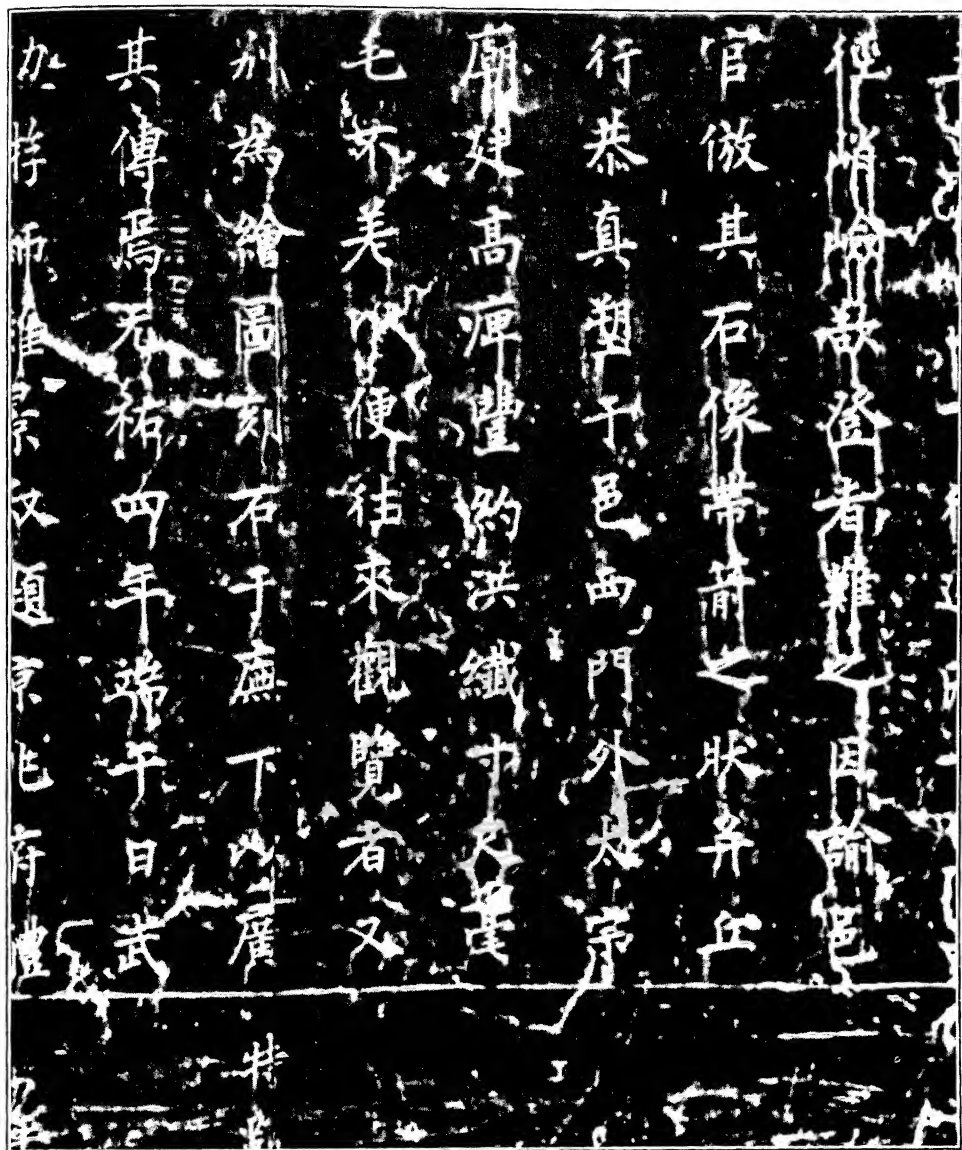 徑峭嶮欲登者難之因諭邑
官倣其石像帶箭之狀并丘
行恭真塑于邑西門外太宗
廟廷高痺豐約洪纖寸尺毫
毛不差以便往來觀覽者又
別為繪圖刻石于廡下以廣
其傳焉元祐四年端午日武
功游師雄景叔題京兆府醴